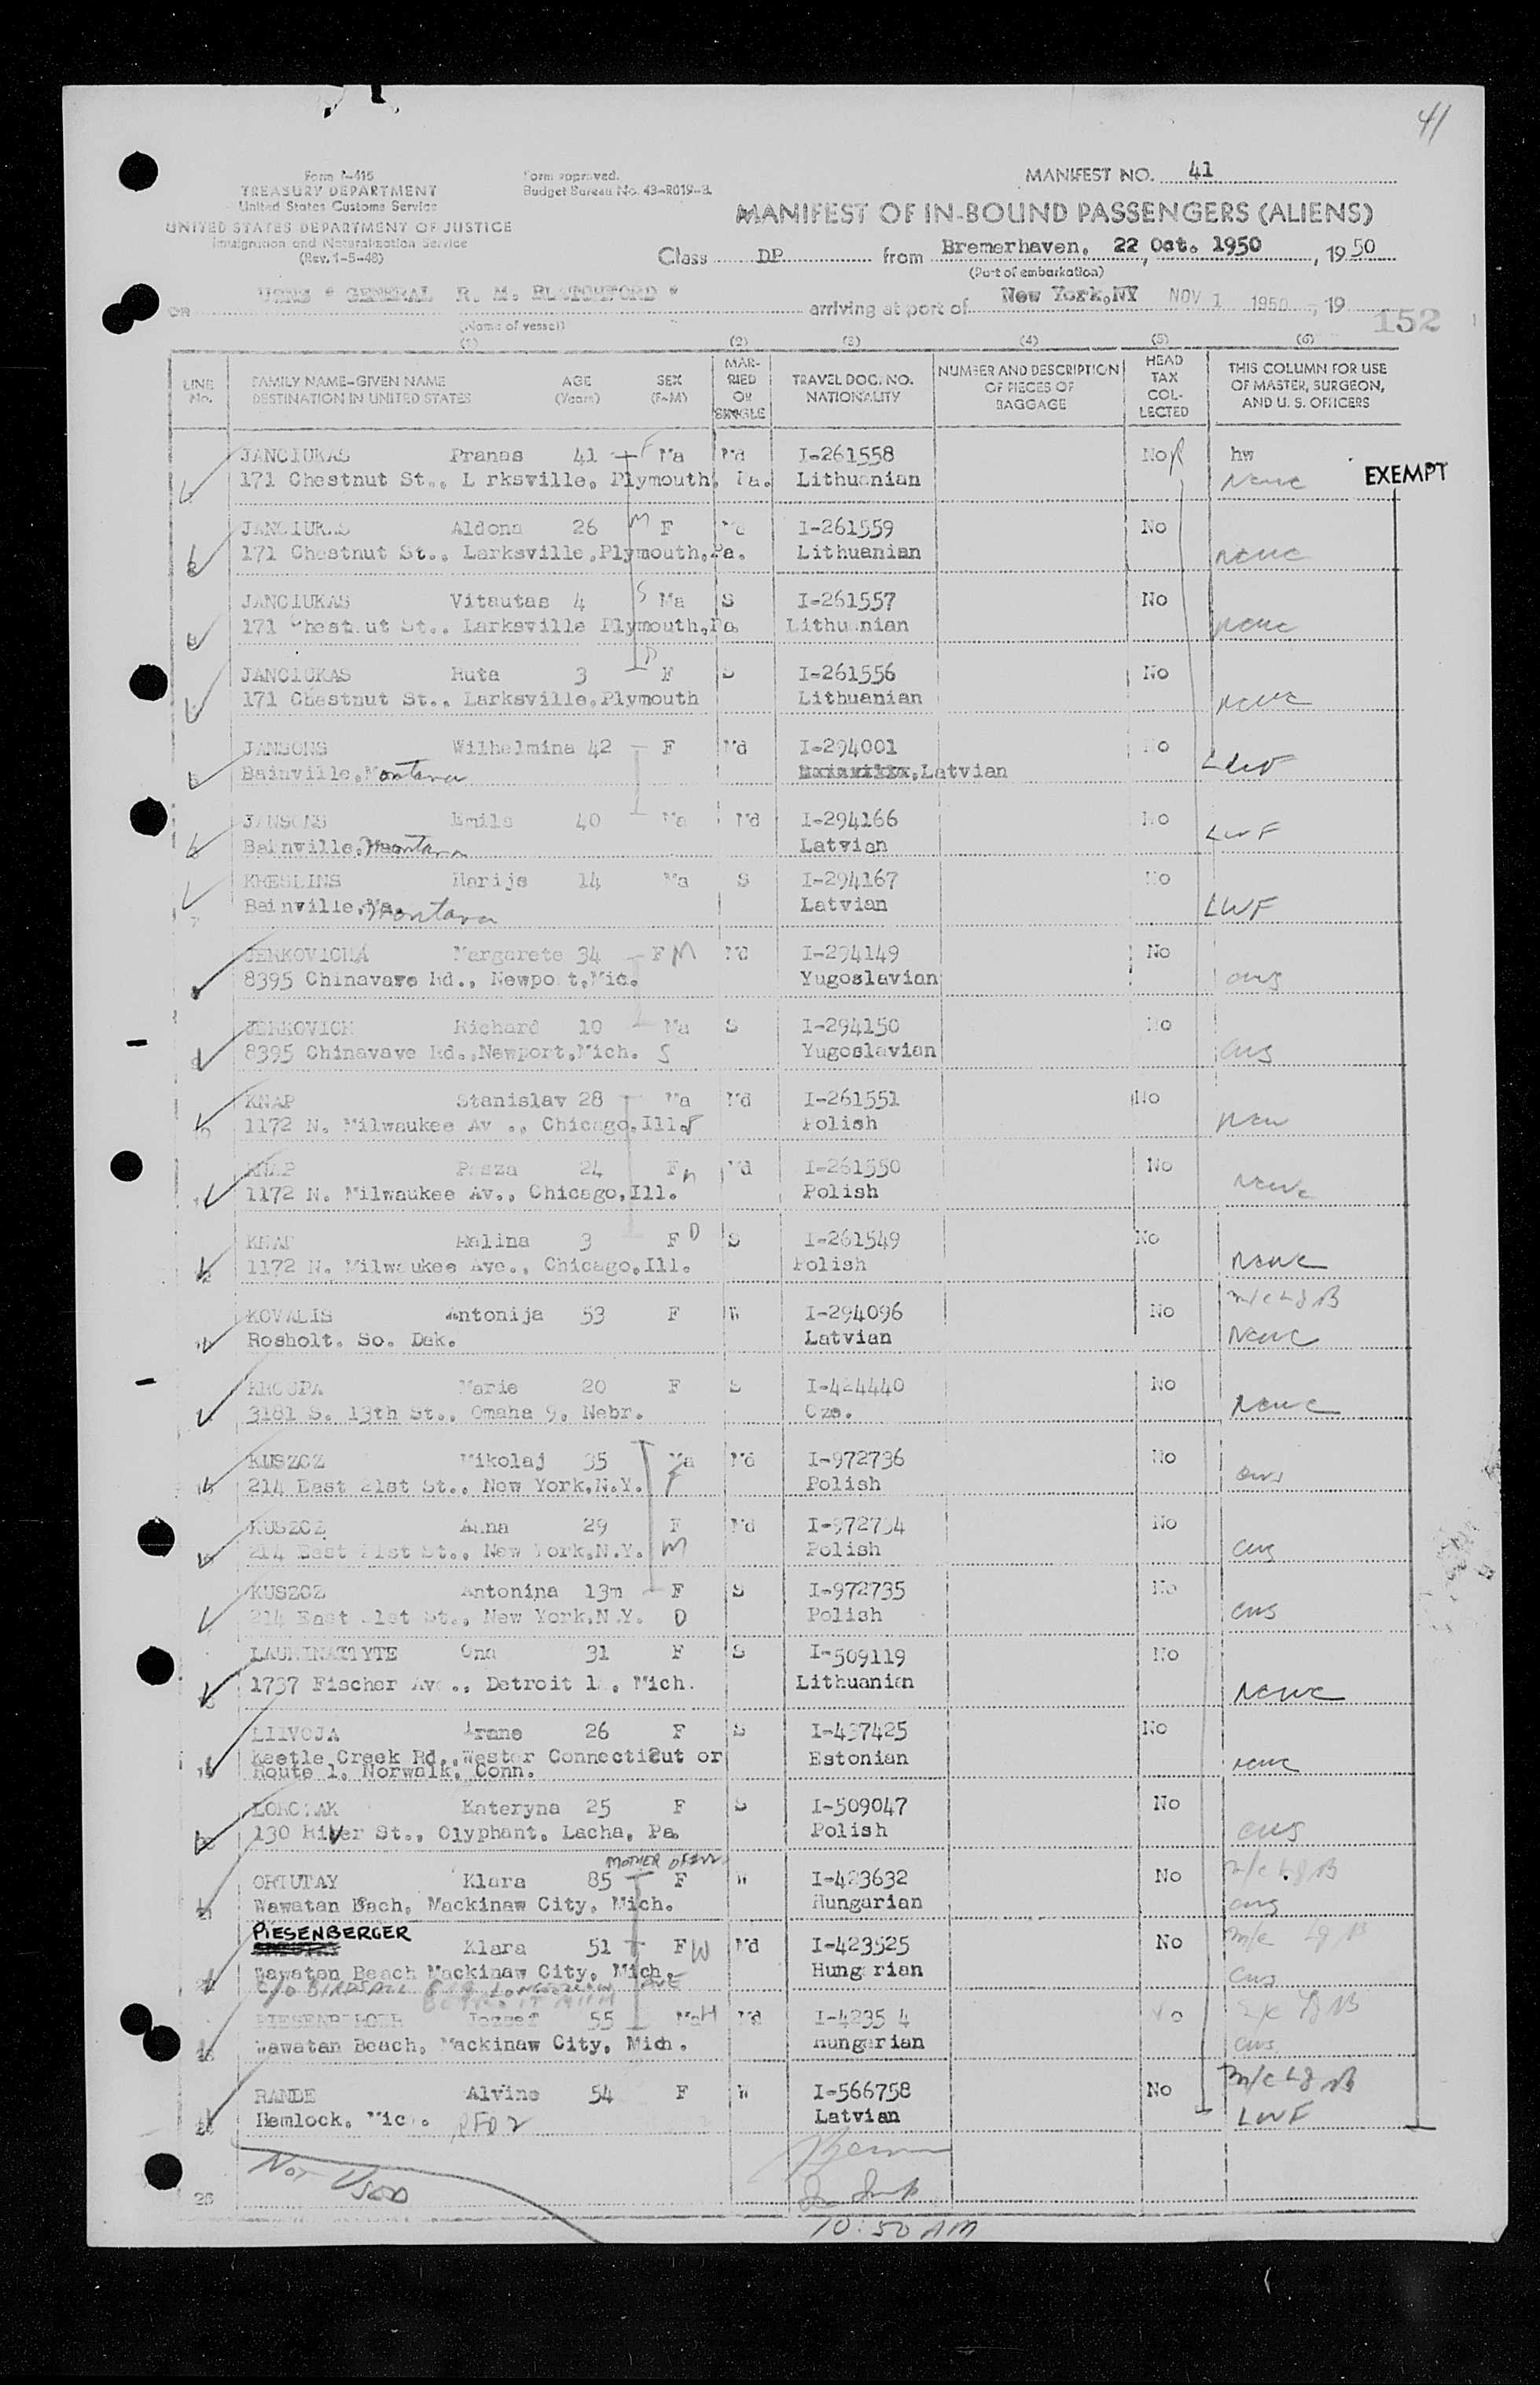 41
Form I-415
TREASURY DEPARTMENT
United States Customs Service
UNITED STATES DEPARTMENT OF JUSTICE
Immigration and Naturalization Service
(Rev. 1-5-48)
Form approved.
Budget Bureau No. 43-R019-3.
MANIFEST NO. 41
MANIFEST OF IN-BOUND PASSENGERS (ALIENS)
Class DP from Bremerhaven, 22 Oct. 1950, 1950
(Port of embarkation)
GENERAL R. M. arriving at port of New York, NY NOV 1 1950, 19
(Name of vessel)
152
(1) (2) (3) (4) (5) (6)
LINE No. FAMILY NAME-GIVEN NAME DESTINATION IN UNITED STATES AGE (Years) SEX (F-M) MARRIED OR SINGLE TRAVEL DOC. NO. NATIONALITY NUMBER AND DESCRIPTION OF PIECES OF BAGGAGE HEAD TAX COLLECTED THIS COLUMN FOR USE OF MASTER, SURGEON, AND U. S. OFFICERS
JANCIUKAS Pranas 41 F Ma Md I-261558 No hw
171 Chestnut St., L rksville, Plymouth, Pa. Lithuanian ncwc EXEMPT
JANCIUKAS Aldona 26 M F Md I-261559 No
171 Chestnut St., Larksville,Plymouth,Pa. Lithuanian ncwc
JANCIUKAS Vitautas 4 S Ma S I-261557 No
171 Chestnut St., Larksville Plymouth,Pa Lithuanian ncwc
JANCIUKAS Ruta 3 D F S I-261556 No
171 Chestnut St., Larksville,Plymouth Lithuanian ncwc
JANSONS Wilhelmina 42 F Md I-294001 No
Bainville,Montana Latvian LWF
JANSONS Emils 40 Ma Md I-294166 No
Bainville, Montana Latvian LWF
KRESLINS Harijs 14 Ma S I-294167 No
Bainville,Ma. Montana Latvian LWF
JERKOVICHA Margarete 34 F M Md I-294149 No
8395 Chinavare Rd., Newport,Mic. Yugoslavian cws
JERKOVICH Richard 10 Ma S I-294150 No
8395 Chinavave Rd.,Newport,Mich. S Yugoslavian cws
KNAP Stanislav 28 Ma Md I-261551 No
1172 N. Milwaukee Av ., Chicago,Ill. F Polish
KNAP 24 F M Md I-261550 No
1172 N. Milwaukee Av., Chicago,Ill. Polish ncwc
KNAP Halina 3 F D S I-261549 No
1172 N. Milwaukee Ave., Chicago,Ill. Polish ncwc
KOVALIS Antonija 53 F W I-294096 No
Rosholt. So. Dak. Latvian ncwc
KROUPA Marie 20 F S I-424440 No
3181 S. 13th St., Omaha 9, Nebr. Cze. ncwc
KUSZCZ Mikolaj 35 Ma Md I-972736 No
214 East 21st St., New York,N.Y. F Polish cws
KUSZCZ Anna 29 F Md I-972734 No
214 East 21st St., New York,N.Y. M Polish cws
KUSZCZ Antonina 13m F S I-972735 No
214 East 21st St., New York,N.Y. D Polish cws
Ona 31 F S I-509119 No
1737 Fischer Av ., Detroit 1 , Mich. Lithuanian ncwc
LIIVOJA 26 F S I-437425 No
Keetle Creek Rd.,Wester Connecticut or Estonian
Route 1, Norwalk, Conn. ncwc
Kateryna 25 F S I-509047 No
130 River St., Olyphant, Lacha, Pa Polish cws
MOTHER OF
ORTUTAY Klara 85 F W I-423632 No
Wawatan Bach, Mackinaw City, Mich. Hungarian cws
PIESENBERGER
Klara 51 F W Md I-423525 No
Wawatan Beach Mackinaw City, Mich. Hungarian cws
C/O BIRDSALL AVE
Jozsef 55 Ma H Md I-4235 4 No
Wawatan Beach, Mackinaw City, Mich. Hungarian cws
RANDE Alvine 54 F W I-566758 No
Hemlock, Mic . RFD 2 Latvian LWF
NOT USED
26
10:50 AM